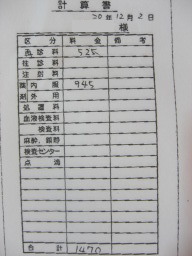 計算書
20年12月2日
様
区分 料金 備考
再診料 525
往診料
注射料
薬内服 945
剤外用
処置料
血液検査料
検査料
麻酔、鎮静
検査センター
点滴
合計 1470